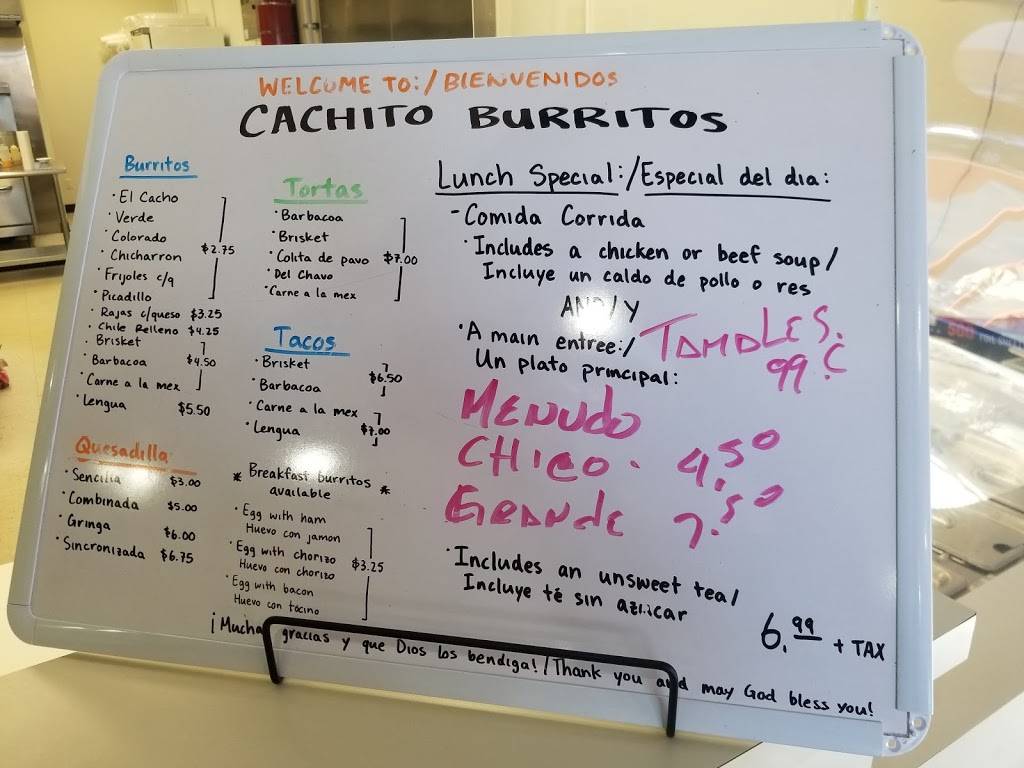 WELCOME TO:/BIENVENIDOS
CACHITO BURRITOS
Burritos
· El Cacho
· Verde
· Colorado
· Chicharron $2.75
· Frijoles c/q
· Picadillo
· Rajas c/queso $3.25
· Chile Relleno $4.25
· Brisket
· Barbacoa $4.50
· Carne a la mex
· Lengua $5.50
Quesadilla
· Sencilla $3.00
· Combinada $5.00
· Gringa $6.00
· Sincronizada $6.75
Tortas
· Barbacoa
· Brisket
· Colita de pavo $7.00
· Del Chavo
· Carne a la mex
Tacos
· Brisket
· Barbacoa $6.50
· Carne a la mex
· Lengua $7.00
* Breakfast burritos *
available
· Egg with ham
Huevo con jamon
· Egg with chorizo $3.25
Huevo con chorizo
· Egg with bacon
Huevo con tocino
Lunch Special:/Especial del dia:
- Comida Corrida
· Includes a chicken or beef soup/
Incluye un caldo de pollo o res
AND/Y
· A main entree:/
Un plato principal:
TAMALES.
99 ¢
MENUDO
CHICO. 4.50
GRANDE 7.50
· Includes an unsweet tea/
Incluye té sin azúcar
6.99 + TAX
¡Muchas gracias y que Dios los bendiga!/Thank you and may God bless you!